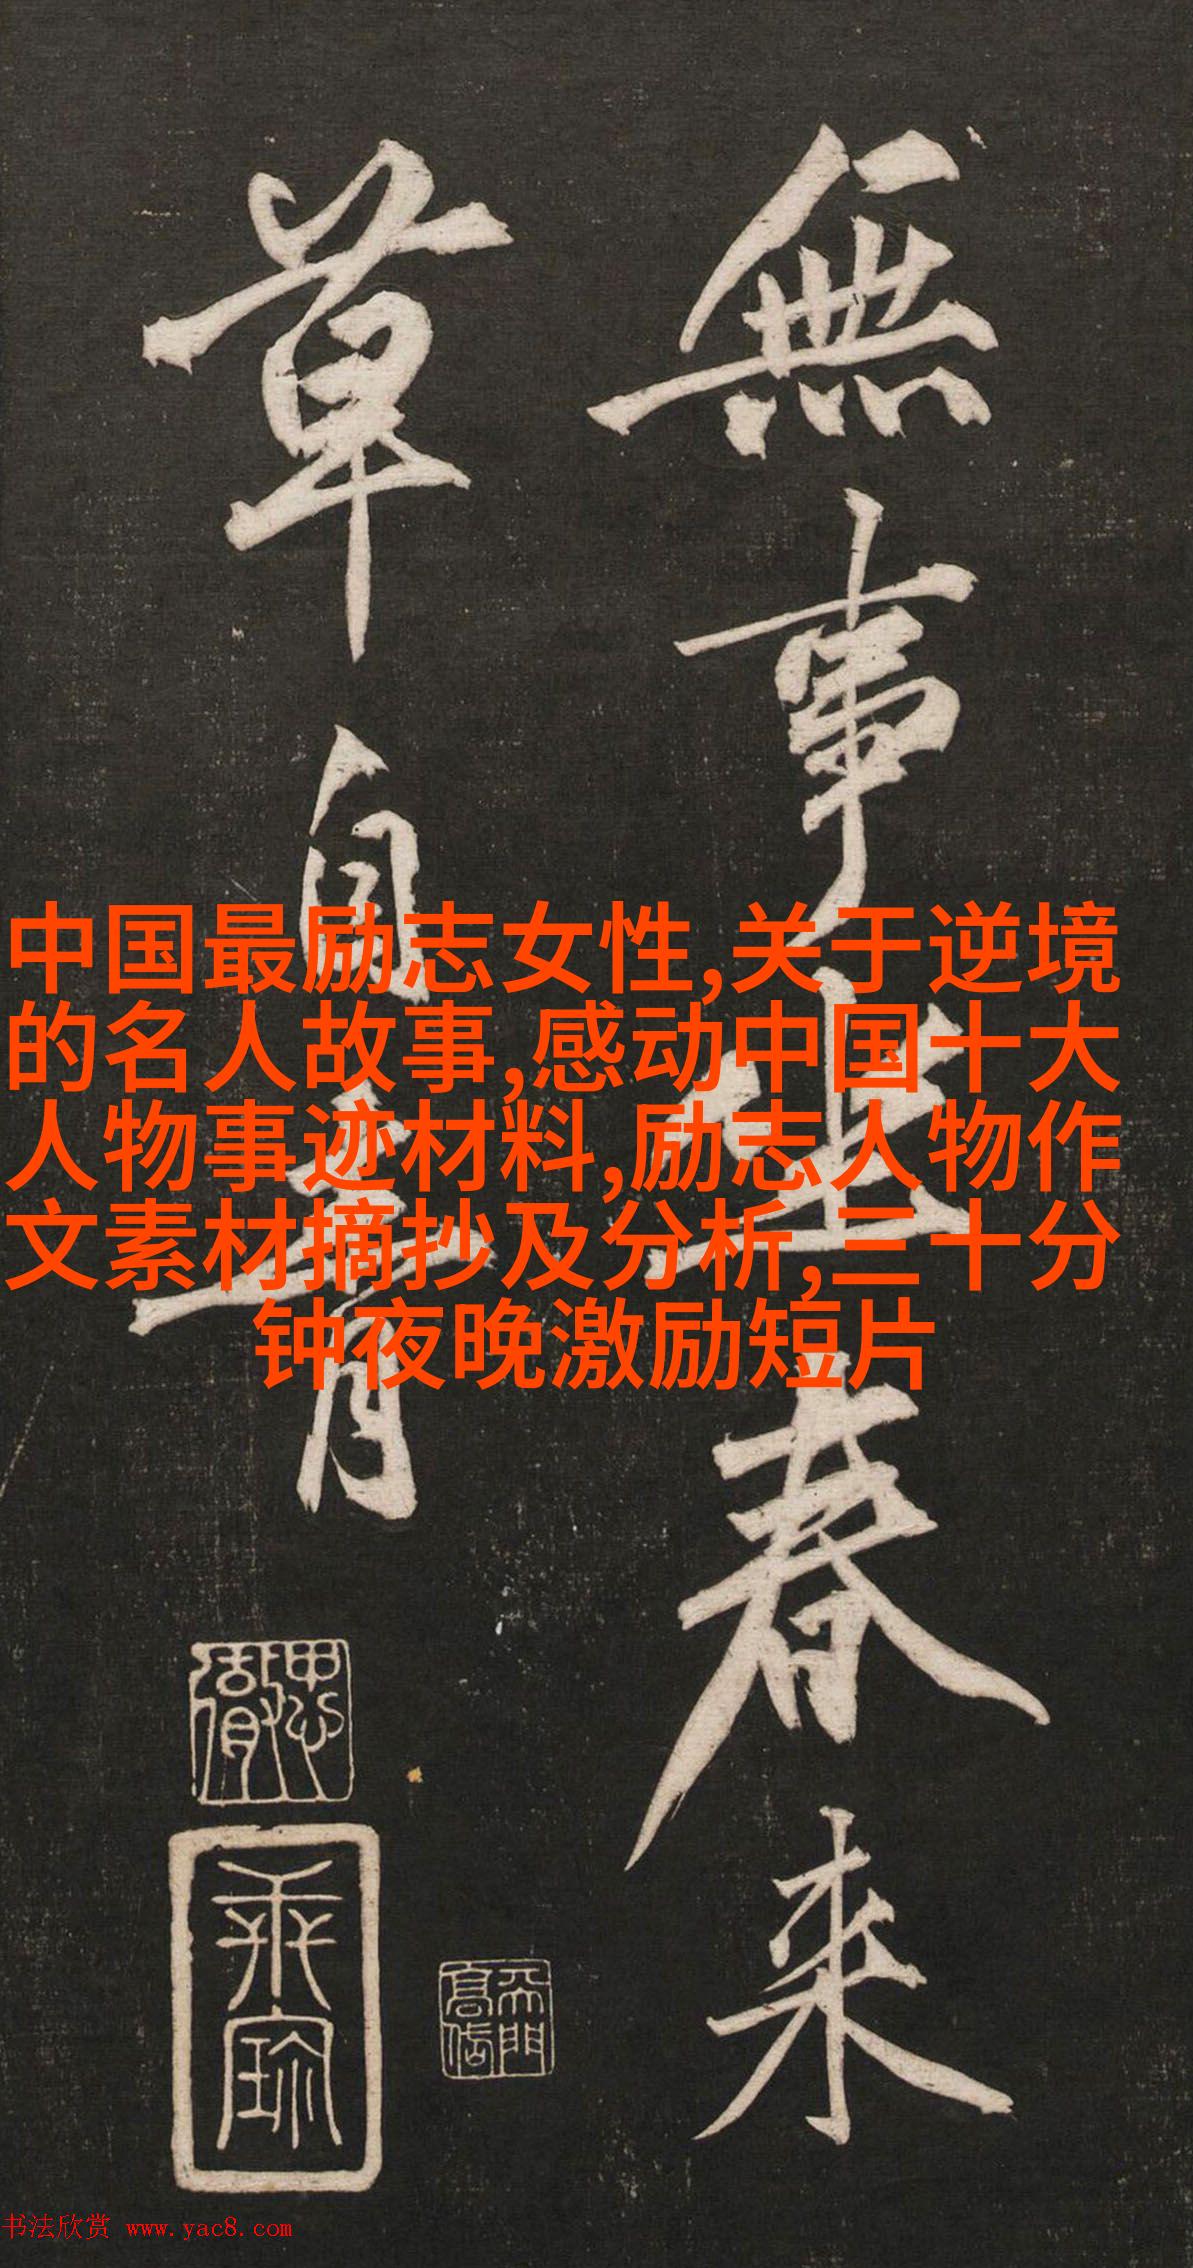 無事坐春来
草自青
中国最励志女性,关于逆境
的名人故事,感动中国十大
人物事迹材料,励志人物作
文素材摘抄及分析,三十分
钟夜晚激励短片
书法欣赏 www.yac8.com